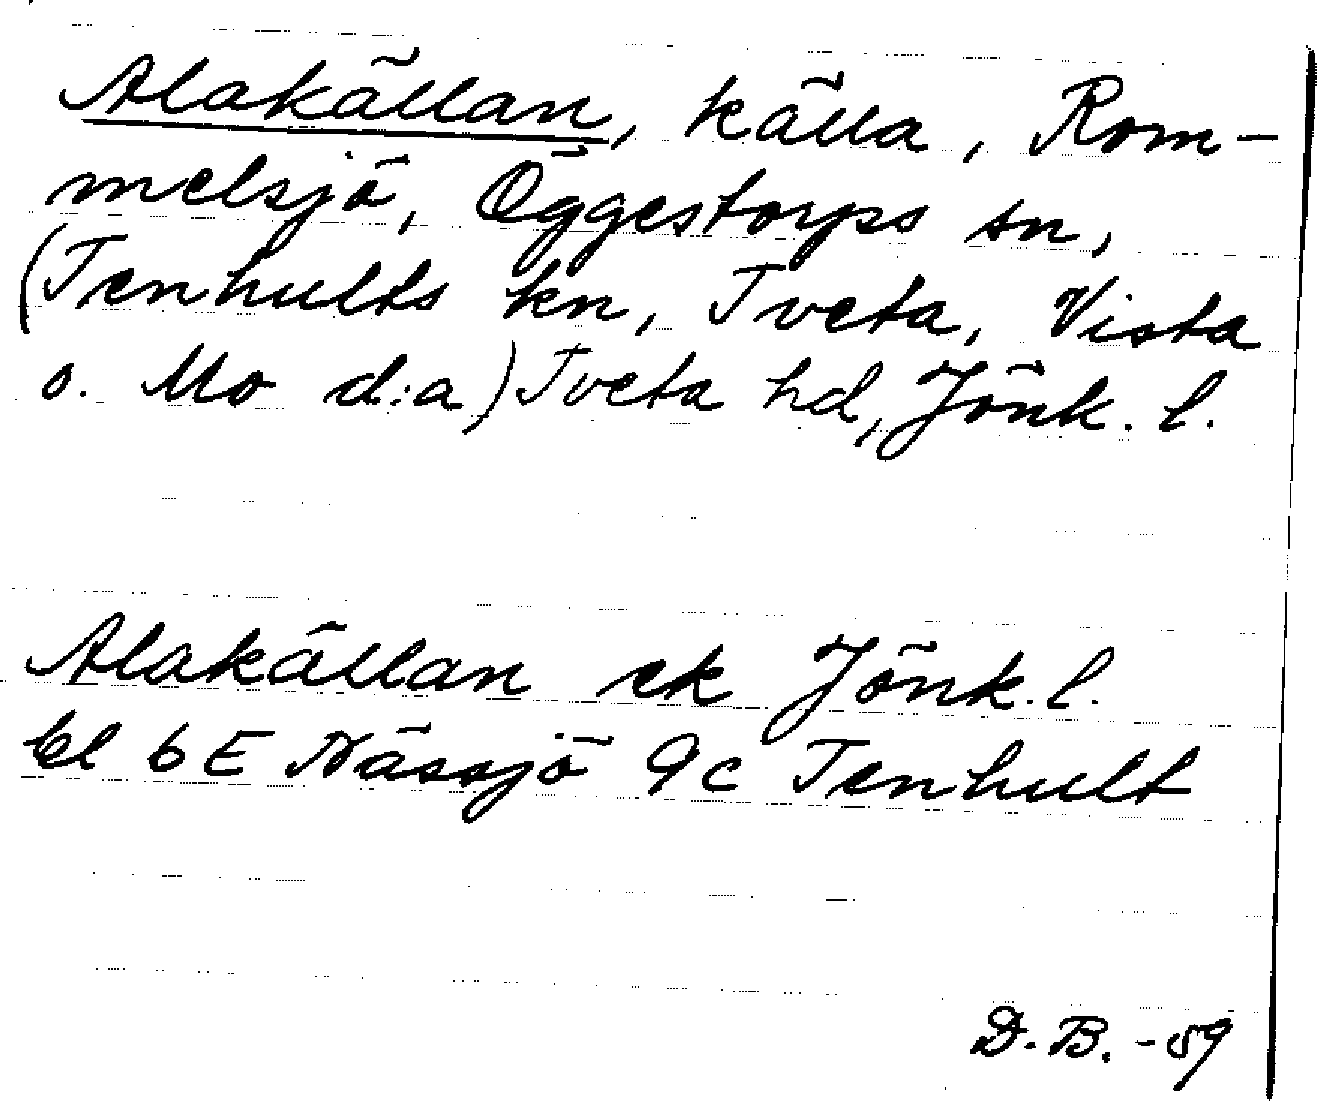 Alakällan, källa, Rom-
melsjö, Öggestorps sn,
(Tenhults kn, Tveta, Vista
o. Mo d:a) Tveta hd, Jönk. l.
Alakällan ek Jönk. l.
bl 6E Nässjö 9c Tenhult
D. B. -59